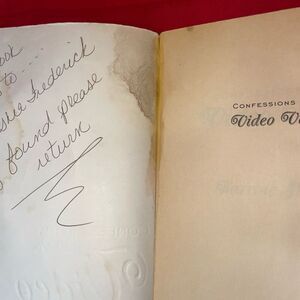 ook
to ....
Frederick
found please
return
CONFESSIONS
Video V